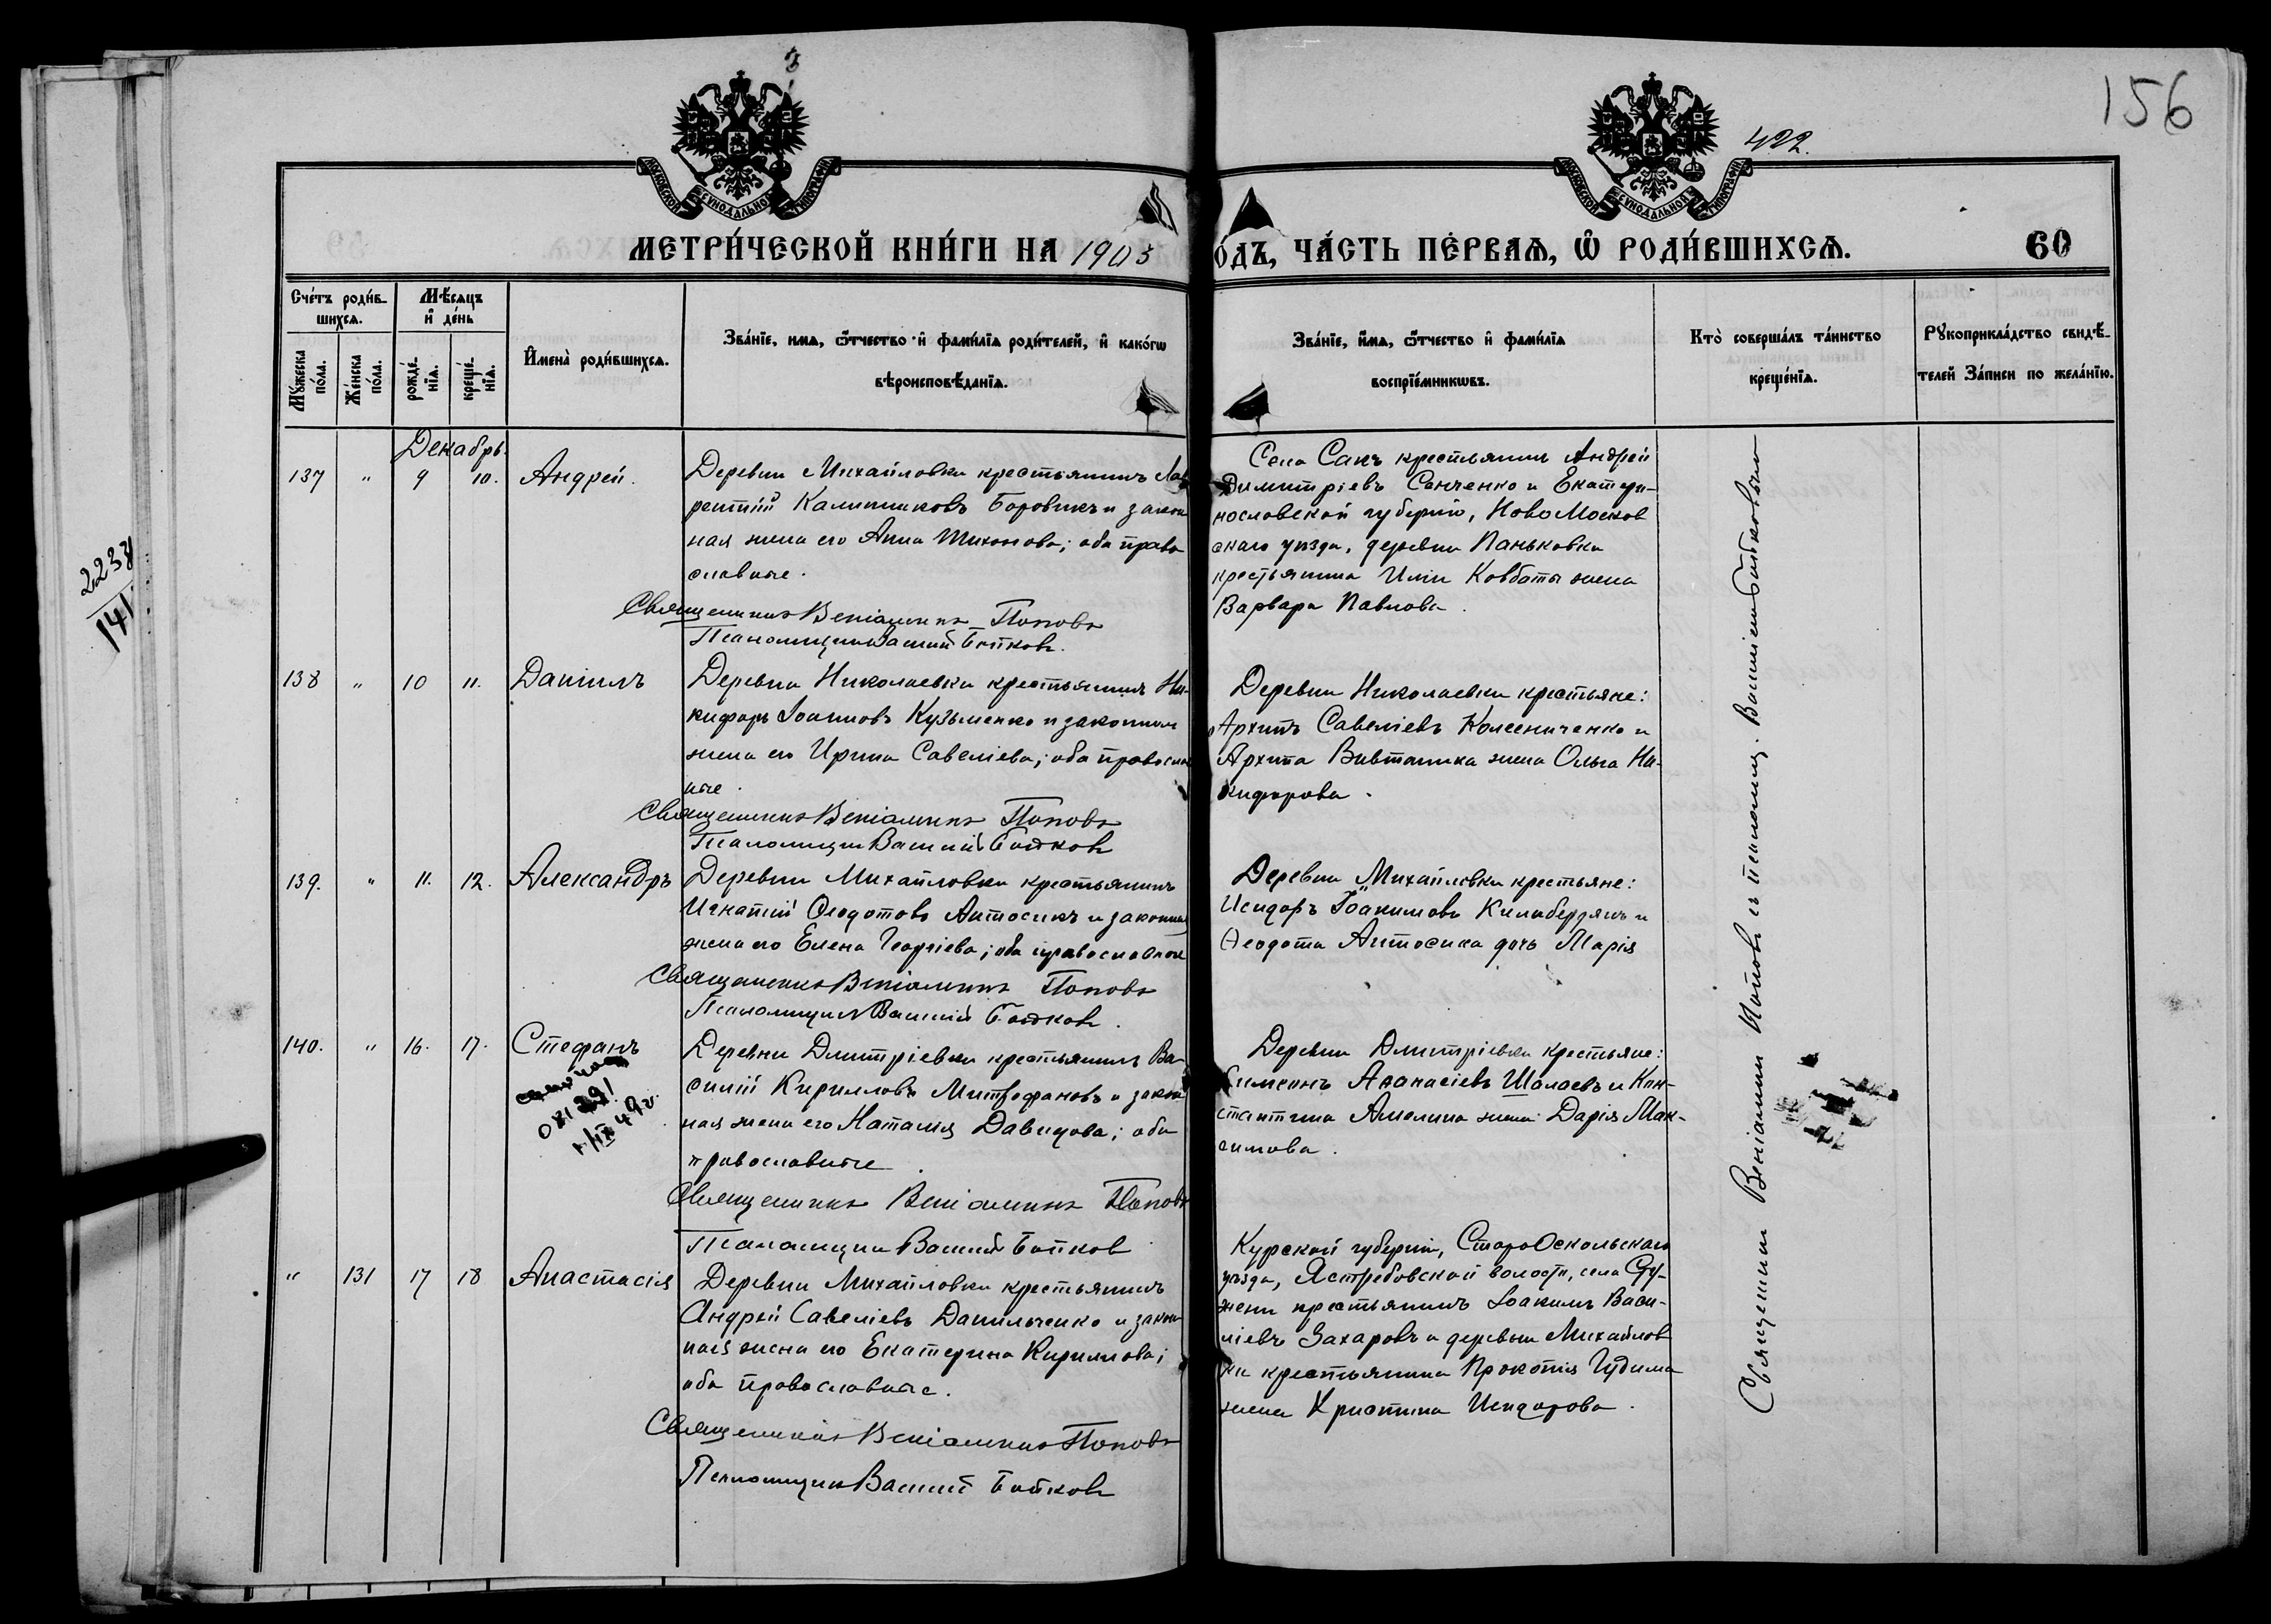 156
422.
МОСКОВСКОЙ СУНОДАЛЬНОЙ ТИПОГРАФІИ
МОСКОВСКОЙ СУНОДАЛЬНОЙ ТИПОГРАФІИ
МЕТРИ́ЧЕСКОЙ КНИ́ГИ НА 1903
О́ДЪ, ЧА́СТЬ ПЕ́РВАѦ, Ѿ РОДИ́ВШИХСѦ.
60
Сче́тъ роди́в-
шихсѧ.
Мѣ́сѧцъ
и҆ де́нь
Мꙋ́жеска по́ла.
Же́нска по́ла.
рожде́-нїѧ.
креще́-нїѧ.
И҆мена̀ роди́вшихсѧ.
Зва́нїе, имѧ, ѻ҆́тчество и҆ фами́лїѧ роди́телей, и҆ како́гѡ
вѣроисповѣ́данїѧ.
Зва́нїе, и҆́мѧ, ѻ҆́тчество и҆ фами́лїѧ
воспрїе́мникѡвъ.
Кто̀ соверша́лъ та́инство
креще́нїѧ.
Рꙋкоприкла́дство свидѣ́-
телей За́писи по жела́нїю.
2238
141
Декабрь.
137 " 9 10. Андрей.
Деревни Михайловки крестьянинъ Лав
рентій Калинниковъ Боровикъ и закон
ная жена его Анна Тихонова; оба право
славные.
Священникъ Веніаминъ Поповъ
Псаломщикъ Василій Бойковъ.
Села Сакъ крестьянинъ Андрей
Димитріевъ Сенченко и Екатери-
нославской губерніи, НовоМосков
скаго уѣзда, деревни Паньковки
крестьянина Иліи Ковбаты жена
Варвара Павлова.
138 " 10 11. Даніилъ
Деревни Николаевки крестьянинъ Ни-
кифоръ Іоанновъ Кузьменко и законная
жена его Ирина Савеліева; оба православ
ные.
Священникъ Веніаминъ Поповъ
Псаломщикъ Василій Бойковъ
Деревни Николаевки крестьяне:
Архипъ Савеліевъ Колесниченко и
Архипа Вивтаника жена Ольга Ни-
кифорова.
139. " 11. 12. Александръ
Деревни Михайловки крестьянинъ
Игнатій Ѳеодотовъ Антосикъ и законная
жена его Елена Георгіева; оба православные
Священникъ Веніаминъ Поповъ
Псаломщикъ Василій Бойковъ.
Деревни Михайловки крестьяне:
Исидоръ Іоакимовъ Килибердинъ и
Ѳеодота Антосика дочь Марія
140. " 16. 17. Стефанъ
1/IX 49 г.
Деревни Дмитріевки крестьянинъ Ва-
силій Кирилловъ Митрофановъ и закон
ная жена его Наталія Давидова; оба
православные
Священникъ Веніаминъ Поповъ
Псаломщикъ Василій Бойковъ
Деревни Дмитріевки крестьяне:
Симеонъ Аѳанасіевъ Шалаевъ и Кон-
стантина Амелина жена Дарія Мак-
симова.
" 131 17 18 Анастасія
Деревни Михайловки крестьянинъ
Андрей Савеліевъ Данильченко и закон
ная жена его Екатерина Кириллова;
оба православные.
Священникъ Веніаминъ Поповъ
Псаломщикъ Василій Бойковъ
Курской губерніи, СтароОскольскаго
уѣзда, Ястребовской волости, села Сту-
жени крестьянинъ Іоакимъ Васи-
ліевъ Захаровъ и деревни Михайлов
ки крестьянина Прокопія Гудима
жена Христина Исидорова.
Священникъ Веніаминъ Поповъ съ псаломщ. Василіемъ Бойковымъ